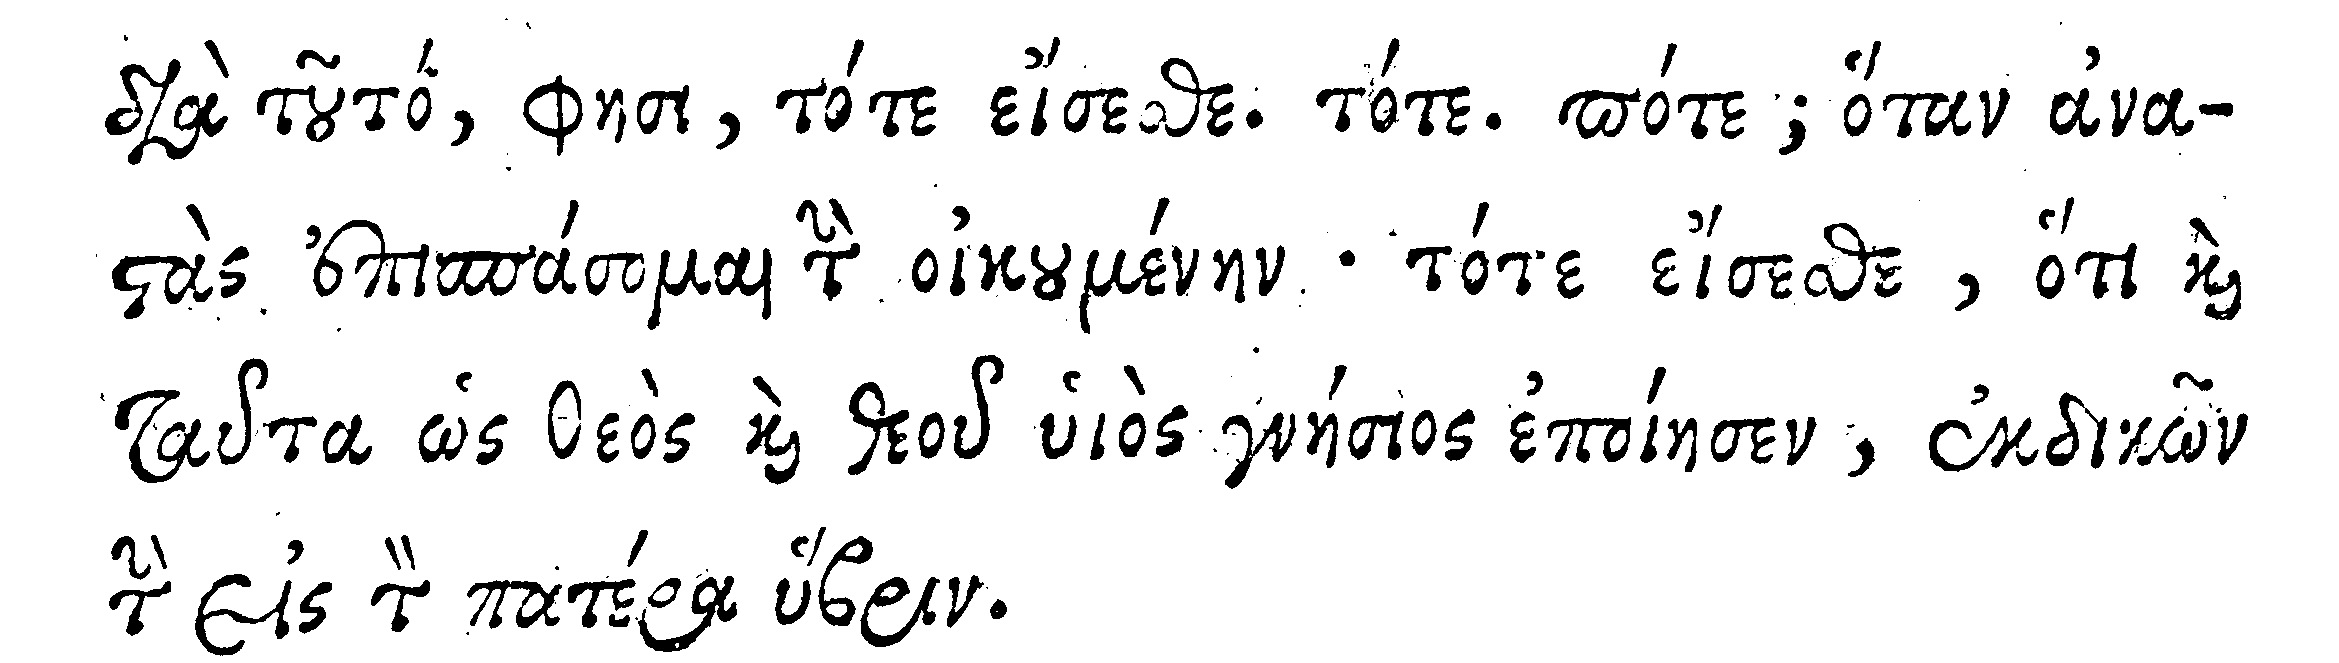 διὰ τοῦτό, φησι, τότε εἴσεσθε. τότε. πότε; ὅταν ἀνα-
στὰς ἐπισπάσομαι τὴν οἰκουμένην · τότε εἴσεσθε, ὅτι καὶ
ταῦτα ὡς θεὸς καὶ θεοῦ υἱὸς γνήσιος ἐποίησεν, ἐκδικῶν
τὴν εἰς τὸν πατέρα ὕβριν.